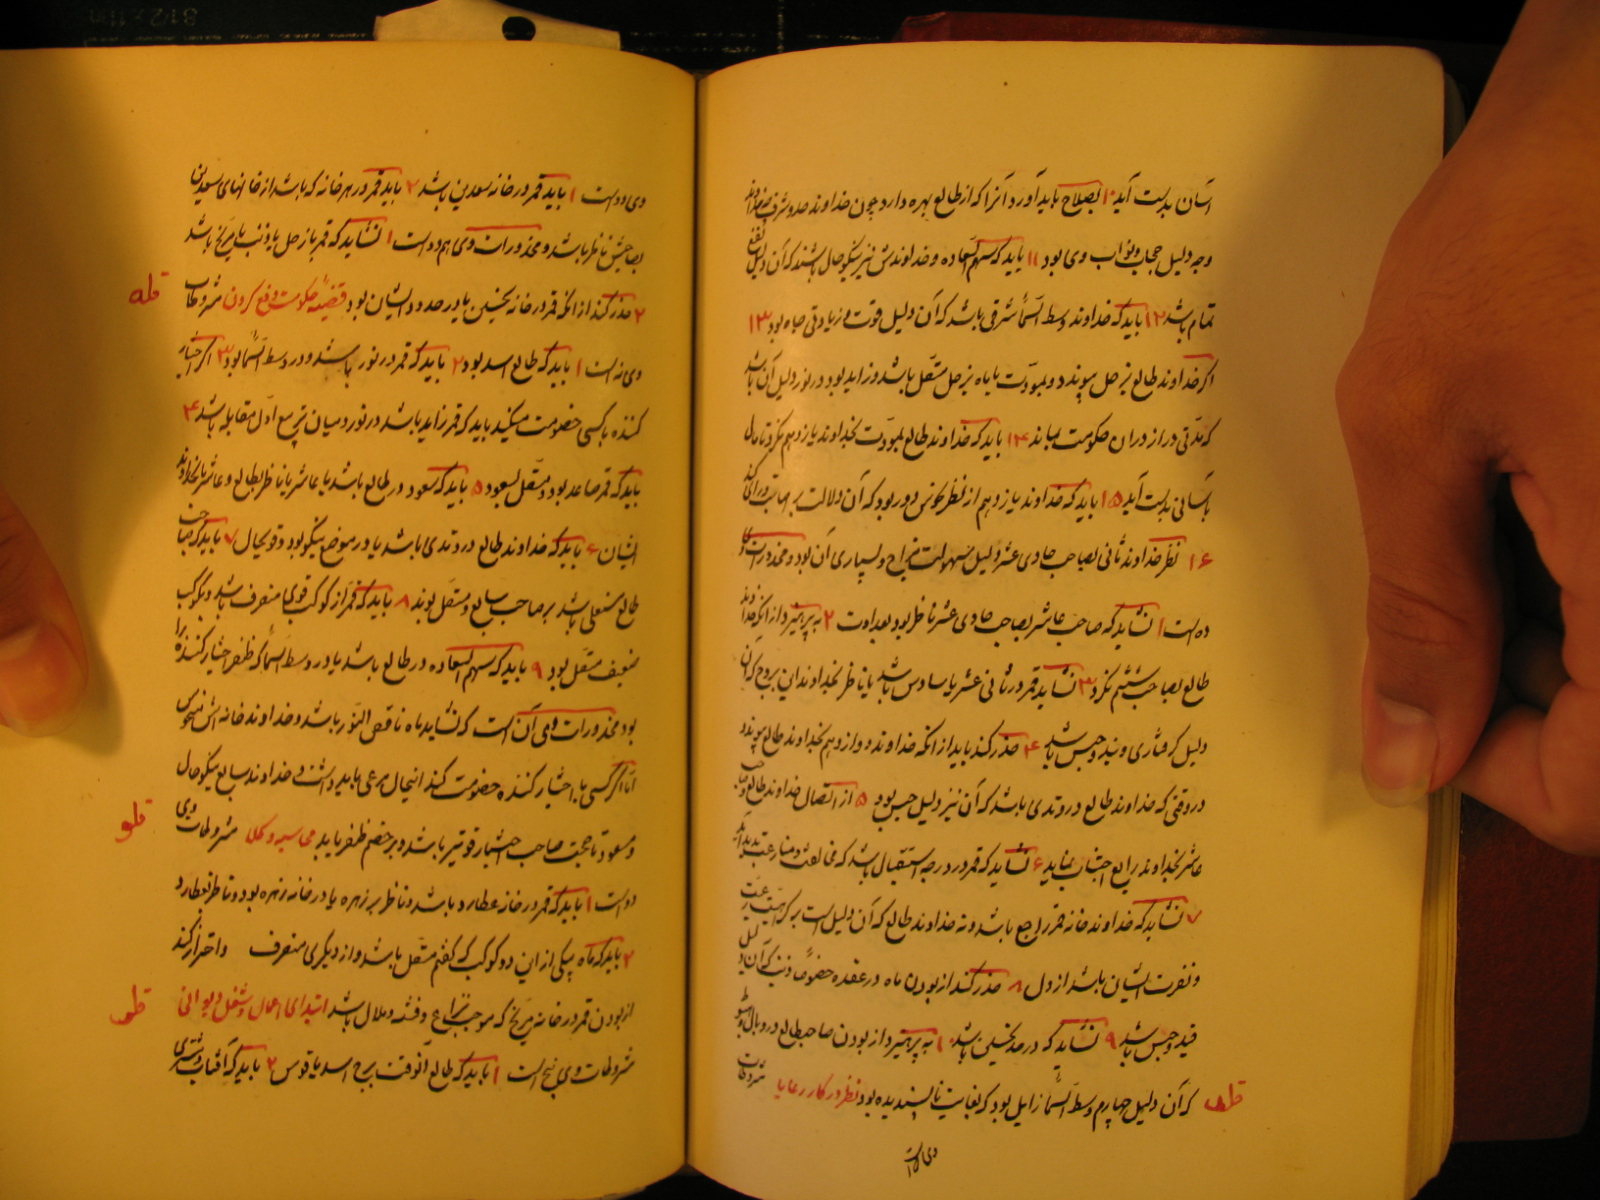 آسان بدست آید ۱۰ بصلاح باید آورد آنرا که از طالع بهره دارد چون خداوند حد و شرف
وجه دلیل حجاب و نواب وی بود ۱۱ باید که سهم السعاده و خداوندش نیز نیکو حال باشند که آن دلیل نفع
تمام باشد ۱۲ باید که خداوند وسط السما شرقی باشد که آن دلیل قوت و زیادتی جاه بود ۱۳
اگر خداوند طالع بزحل پیوندد و بمودت یا ماه بزحل متصل باشد و زاید بود در نور دلیل آن باشد
که مدتی دراز در آن حکومت بماند ۱۴ باید که خداوند طالع بمودت بخداوند یازدهم نگرد تا مال
بآسانی بدست آید ۱۵ باید که خداوند یازدهم از نظر نحوس دور بود که آن دلالت بر
۱۶ نظر خداوند ثانی بصاحب حادی عشر دلیل سهولت خراج و بسیاری آن بود و محذورات وی
ده است ۱ نشاید که صاحب عاشر بصاحب حادی عشر ناظر بود بعداوت ۲ بپرهیزد از آنکه خداوند
طالع بصاحب ششم نگرد ۳ نشاید قمر در ثانی عشر یا سادس باشد یا ناظر بخداوند این بروج که آن
دلیل گرفتاری و بند و حبس باشد ۴ حذر کند باید از آنکه خداوند دوازدهم بخداوند طالع پیوندد
در وقتی که خداوند طالع در وتدی باشد که آن نیز دلیل حبس بود ۵ از اتصال خداوند طالع و صاحب
عاشر بخداوند رابع اجتناب نماید ۶ نشاید که قمر در درجه استقبال باشد که مخالفت و منازعت پدید آید
۷ نشاید که خداوند خانه قمر راجع باشد و نه خداوند طالع که آن دلیل است بر کراهیت رعیت
و نفرت ایشان باشد از دل ۸ حذر کند از بودن ماه در عقده خصوصا ذنب که آن دلیل
قید و حبس باشد ۹ نشاید که در حد نحسین باشد ۱۰ بپرهیزد از بودن صاحب طالع در وبال و هبوط
که آن دلیل چهارم وسط السما زایل بود که بغایت ناپسندیده بود نظر در کار رعایا شروطات
وی دو است
وی دو است ۱ باید قمر در خانه سعدین باشد ۲ باید قمر در هر خانه که باشد از خانهای سعدین
بصاحبش ناظر باشد و محذورات وی هم دو است ۱ نشاید که قمر باز حل یا ذنب یا مریخ باشد
۲ حذر کند از آنکه قمر در خانه نحسین یا در حدود ایشان بود قضیه حکومت و رفع کردن شروطات
قله
وی نه است ۱ باید که طالع اسد بود ۲ باید که قمر در نور باشد و در وسط السما بود ۳ اگر اختیار
کننده با کسی خصومت میکند باید که قمر زاید باشد در نور و میان تربیع اول مقابله باشد ۴
باید که قمر صاعد بود و متصل بسعود ۵ باید که سعود در طالع باشد یا عاشر یا ناظر بطالع و عاشر یا بخداوند
ایشان ۶ باید که خداوند طالع در وتدی باشد یا در موضع نیکو بود و قوی حال ۷ باید که صاحب
طالع مستعلی باشد بر صاحب سابع و متصل بوند ۸ باید که قمر از کوکب قوی منصرف باشد و بکوکب
ضعیف متصل بود ۹ باید که سهم السعاده در طالع باشد یا در وسط السما که ظفر اختیار کننده را
بود محذورات وی آن است که نشاید ماه ناقص النور باشد و خداوند خانه اش منحوس
اما اگر کسی با اختیار کننده خصومت کند اینحال مرعی باید داشت و خداوند سابع نیکو حال
و مسعود تا حجت صاحب اختیار قویتر باشد و بر خصم ظفر یابد محاسبه وکلا شروطات وی
قلو
دو است ۱ باید که قمر در خانه عطارد باشد و ناظر بر زهره یا در خانه زهره بود و ناظر بعطارد
۲ باید که ماه بیکی از این دو کوکب که گفتم متصل باشد و از دیگری منصرف و احتراز کند
از بودن قمر در خانه مریخ که موجب نزاع و فتنه و ملال باشد ابتدای اعمال و شغل دیوانی
قلز
شروطات وی پنج است ۱ باید که طالع آنوقت برج اسد یا قوس ۲ باید که آفتاب و مشتری